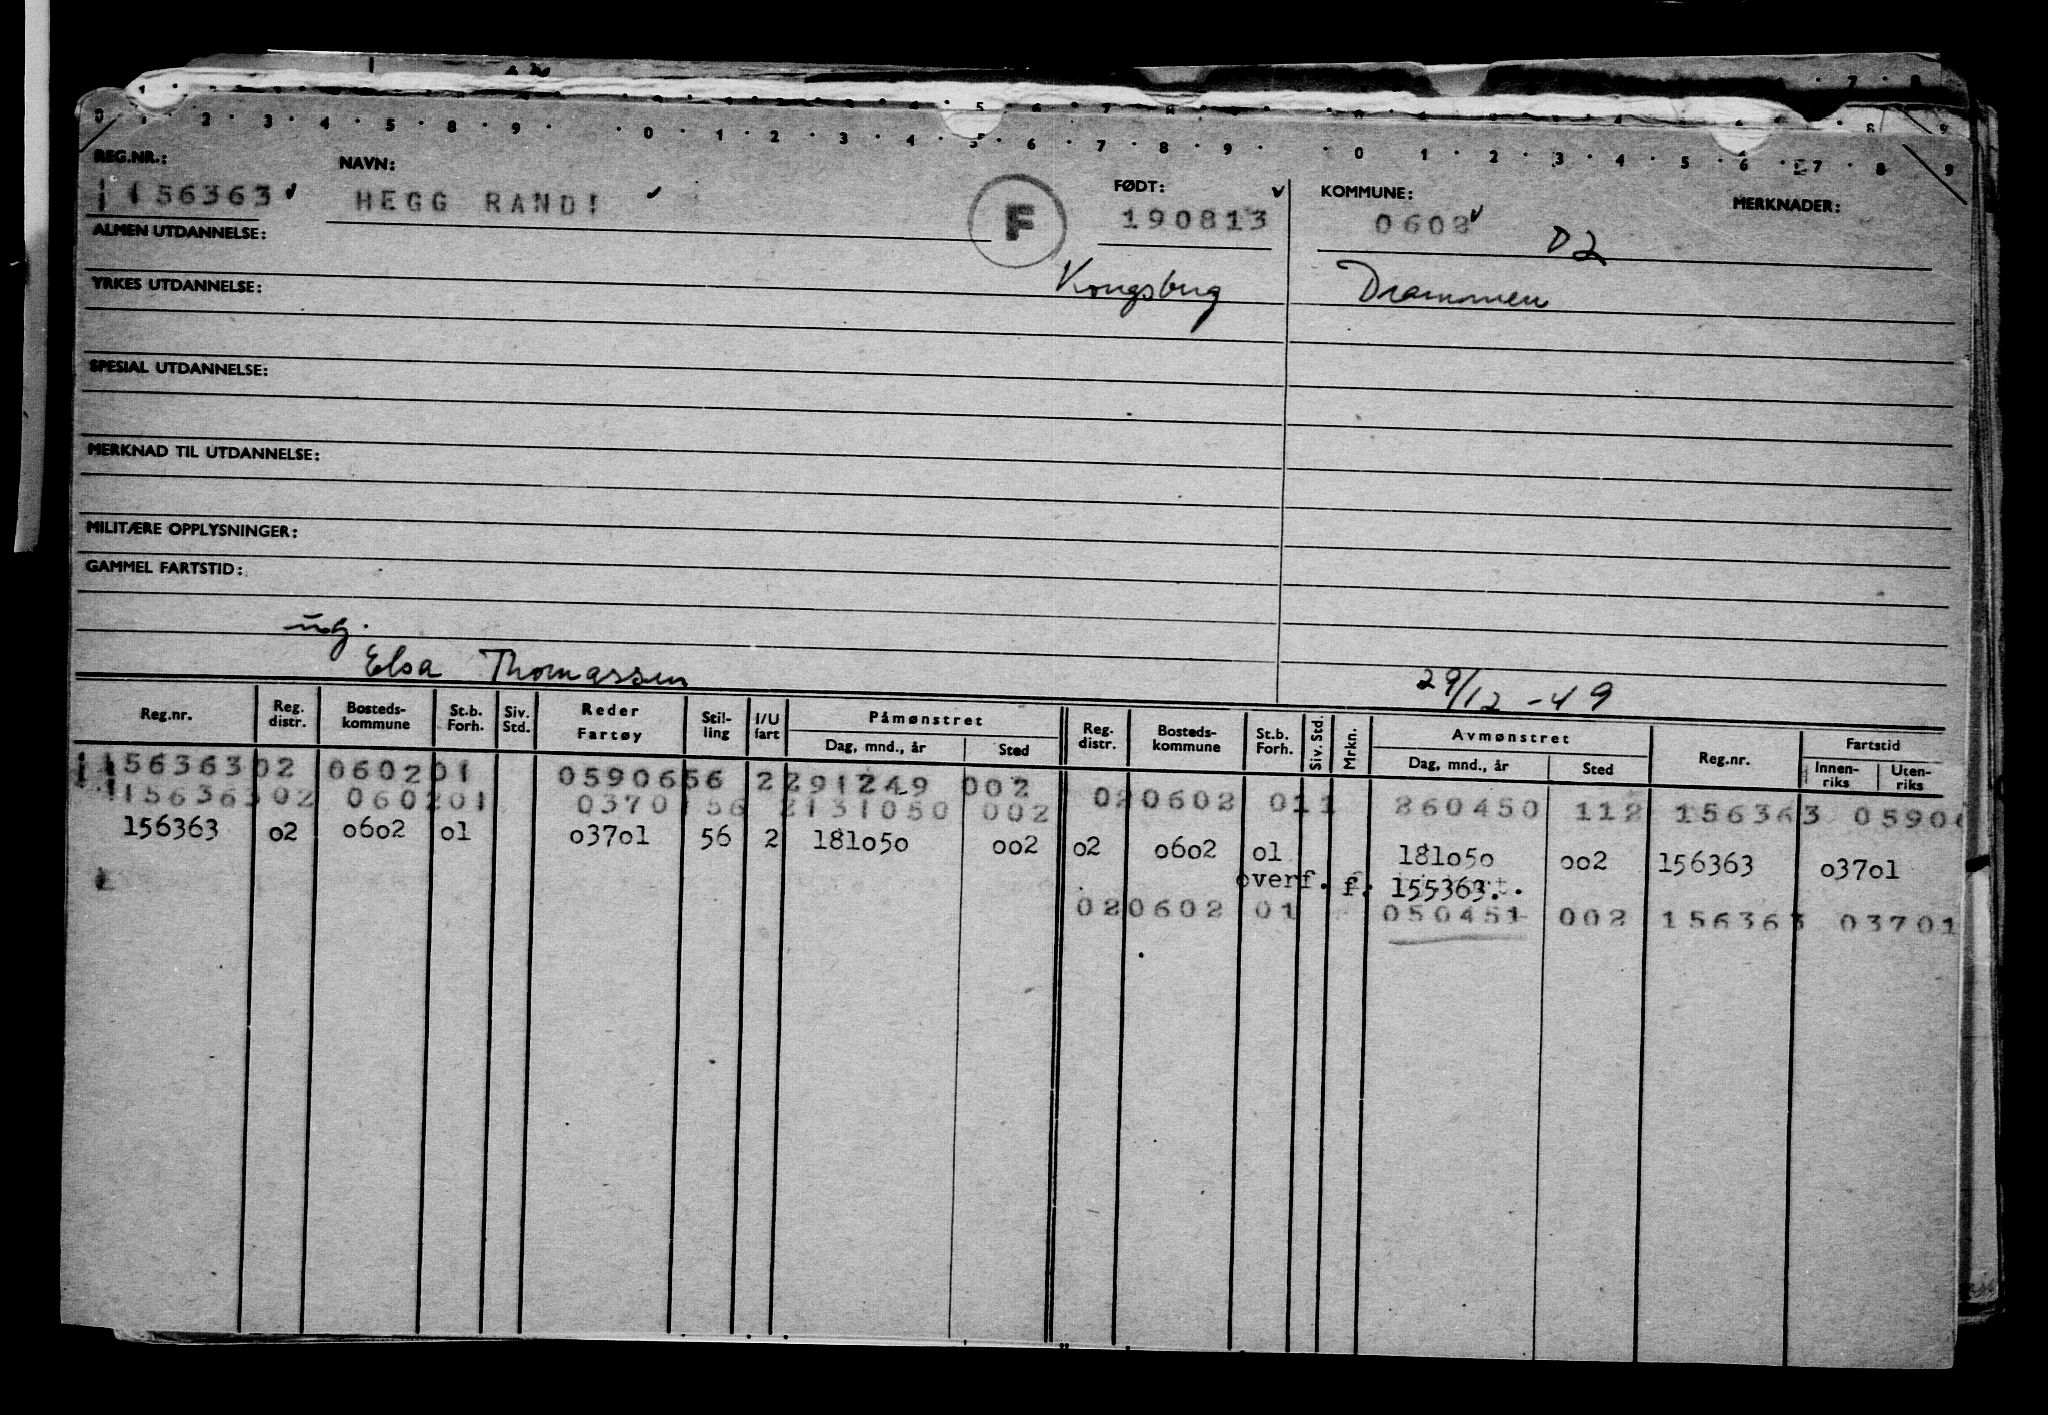 0 1 2 3 4 5 8 9 0 1 2 3 4 5 6 7 8 9 0 1 2 3 4 5 6 7 8 9
REG.NR.: NAVN: FØDT: KOMMUNE: MERKNADER:
156363 HEGG RANDI F 190813 0602 D2
ALMEN UTDANNELSE:
Kongsberg Drammen
YRKES UTDANNELSE:
SPESIAL UTDANNELSE:
MERKNAD TIL UTDANNELSE:
MILITÆRE OPPLYSNINGER:
GAMMEL FARTSTID:
ug.
Elsa Thomassen 29/12-49
Reg.nr. Reg. distr. Bosteds-kommune St.b. Forh. Siv. Std. Reder Fartøy Stil-ling I/U fart Påmønstret Dag, mnd., år Sted Reg. distr. Bosteds-kommune St.b. Forh. Siv. Std. Mrkn. Avmønstret Dag, mnd., år Sted Reg.nr. Fartstid Innen-riks Uten-riks
156363 02 0602 01 05906 56 2 291249 002
156363 02 0602 01 0370 56 2 131050 002 02 0602 01 1 260450 112 156363 0590
156363 o2 o6o2 o1 o37o1 56 2 181o5o oo2 o2 o6o2 o1 181o5o oo2 156363 o37o1
overf. f. 155363.
02 0602 01 050451 002 156363 03701